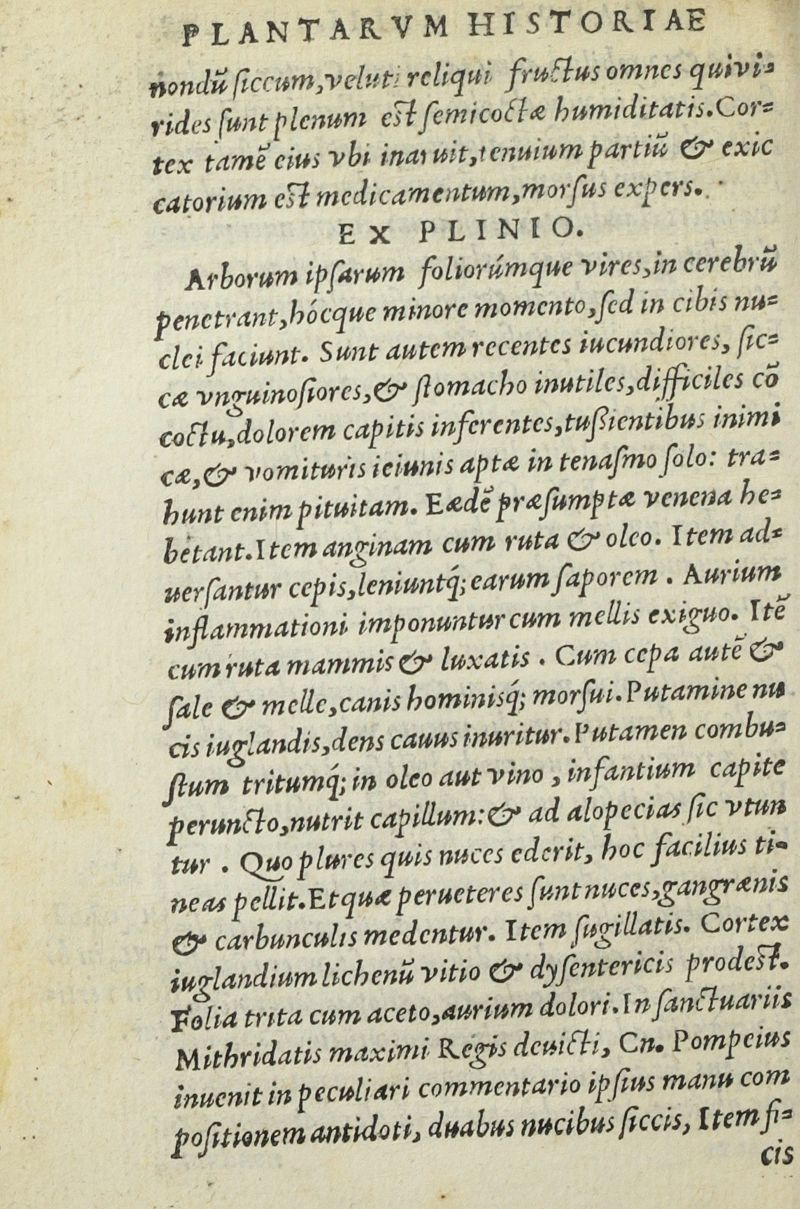 PLANTARVM HISTORIAE
nondū ſiccum, velut reliqui fructus omnes quivi-
rides ſunt plenum est ſemicoctæ humiditatis. Cor-
tex tamē eius vbi inaruit, tenuium partiū & exic
catorium est medicamentum, morſus expers.
EX PLINIO.
Arborum ipſarum foliorúmque vires, in cerebrū
penetrant, hócque minore momento, ſed in cibis nu-
clei faciunt. Sunt autem recentes iucundiores, ſic-
cæ vnguinoſiores, & ſtomacho inutiles, difficiles cō
coctu, dolorem capitis inferentes, tußientibus inimi
cæ, & vomituris ieiunis aptæ in tenaſmo ſolo: tra-
hunt enim pituitam. Eædē præſumptæ venena he-
betant. Item anginam cum ruta & oleo. Item ad-
uerſantur cepis, leniuntq́; earum ſaporem. Aurium
inflammationi imponuntur cum mellis exiguo. Itē
cum ruta mammis & luxatis. Cum cepa autē &
ſale & melle, canis hominisq́; morſui. Putamine nu
cis iuglandis, dens cauus inuritur. Putamen combu-
ſtum tritumq́; in oleo aut vino, infantium capite
peruncto, nutrit capillum: & ad alopecias ſic vtun
tur. Quo plures quis nuces ederit, hoc facilius ti-
neas pellit. Et quæ perueteres ſunt nuces, gangrænis
& carbunculis medentur. Item ſugillatis. Cortex
iuglandium lichenū vitio & dyſentericis prodest.
Folia trita cum aceto, aurium dolori. In ſanctuariis
Mithridatis maximi Regis deuicti, Cn. Pompeius
inuenit in peculiari commentario ipſius manu com
poſitionem antidoti, duabus nucibus ſiccis, Item fi-
cis